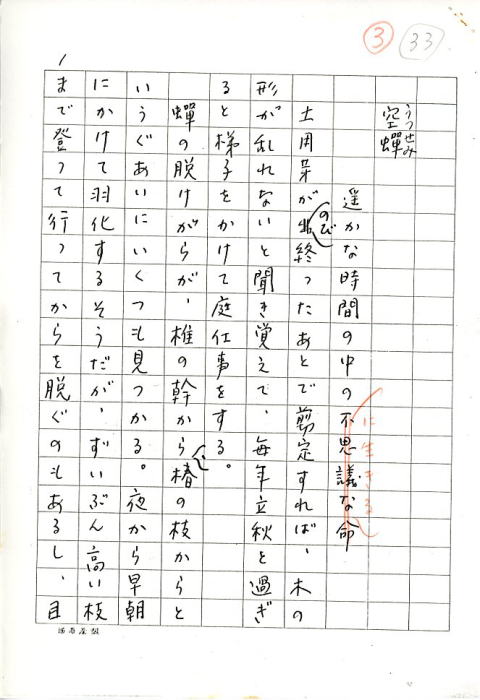 ③
33
空蟬
うつせみ
遥かな時間の中の不思議な命
に生きる
土用芽が出終ったあとで剪定すれば、木の
のび
形が乱れないと聞き覚えて、毎年立秋を過ぎ
ると梯子をかけて庭仕事をする。
蟬の脱けがらが、椎の幹から椿の枝からと
いうぐあいにいくつも見つかる。夜から早朝
にかけて羽化するそうだが、ずいぶん高い枝
まで登って行ってからを脱ぐのもあるし、目